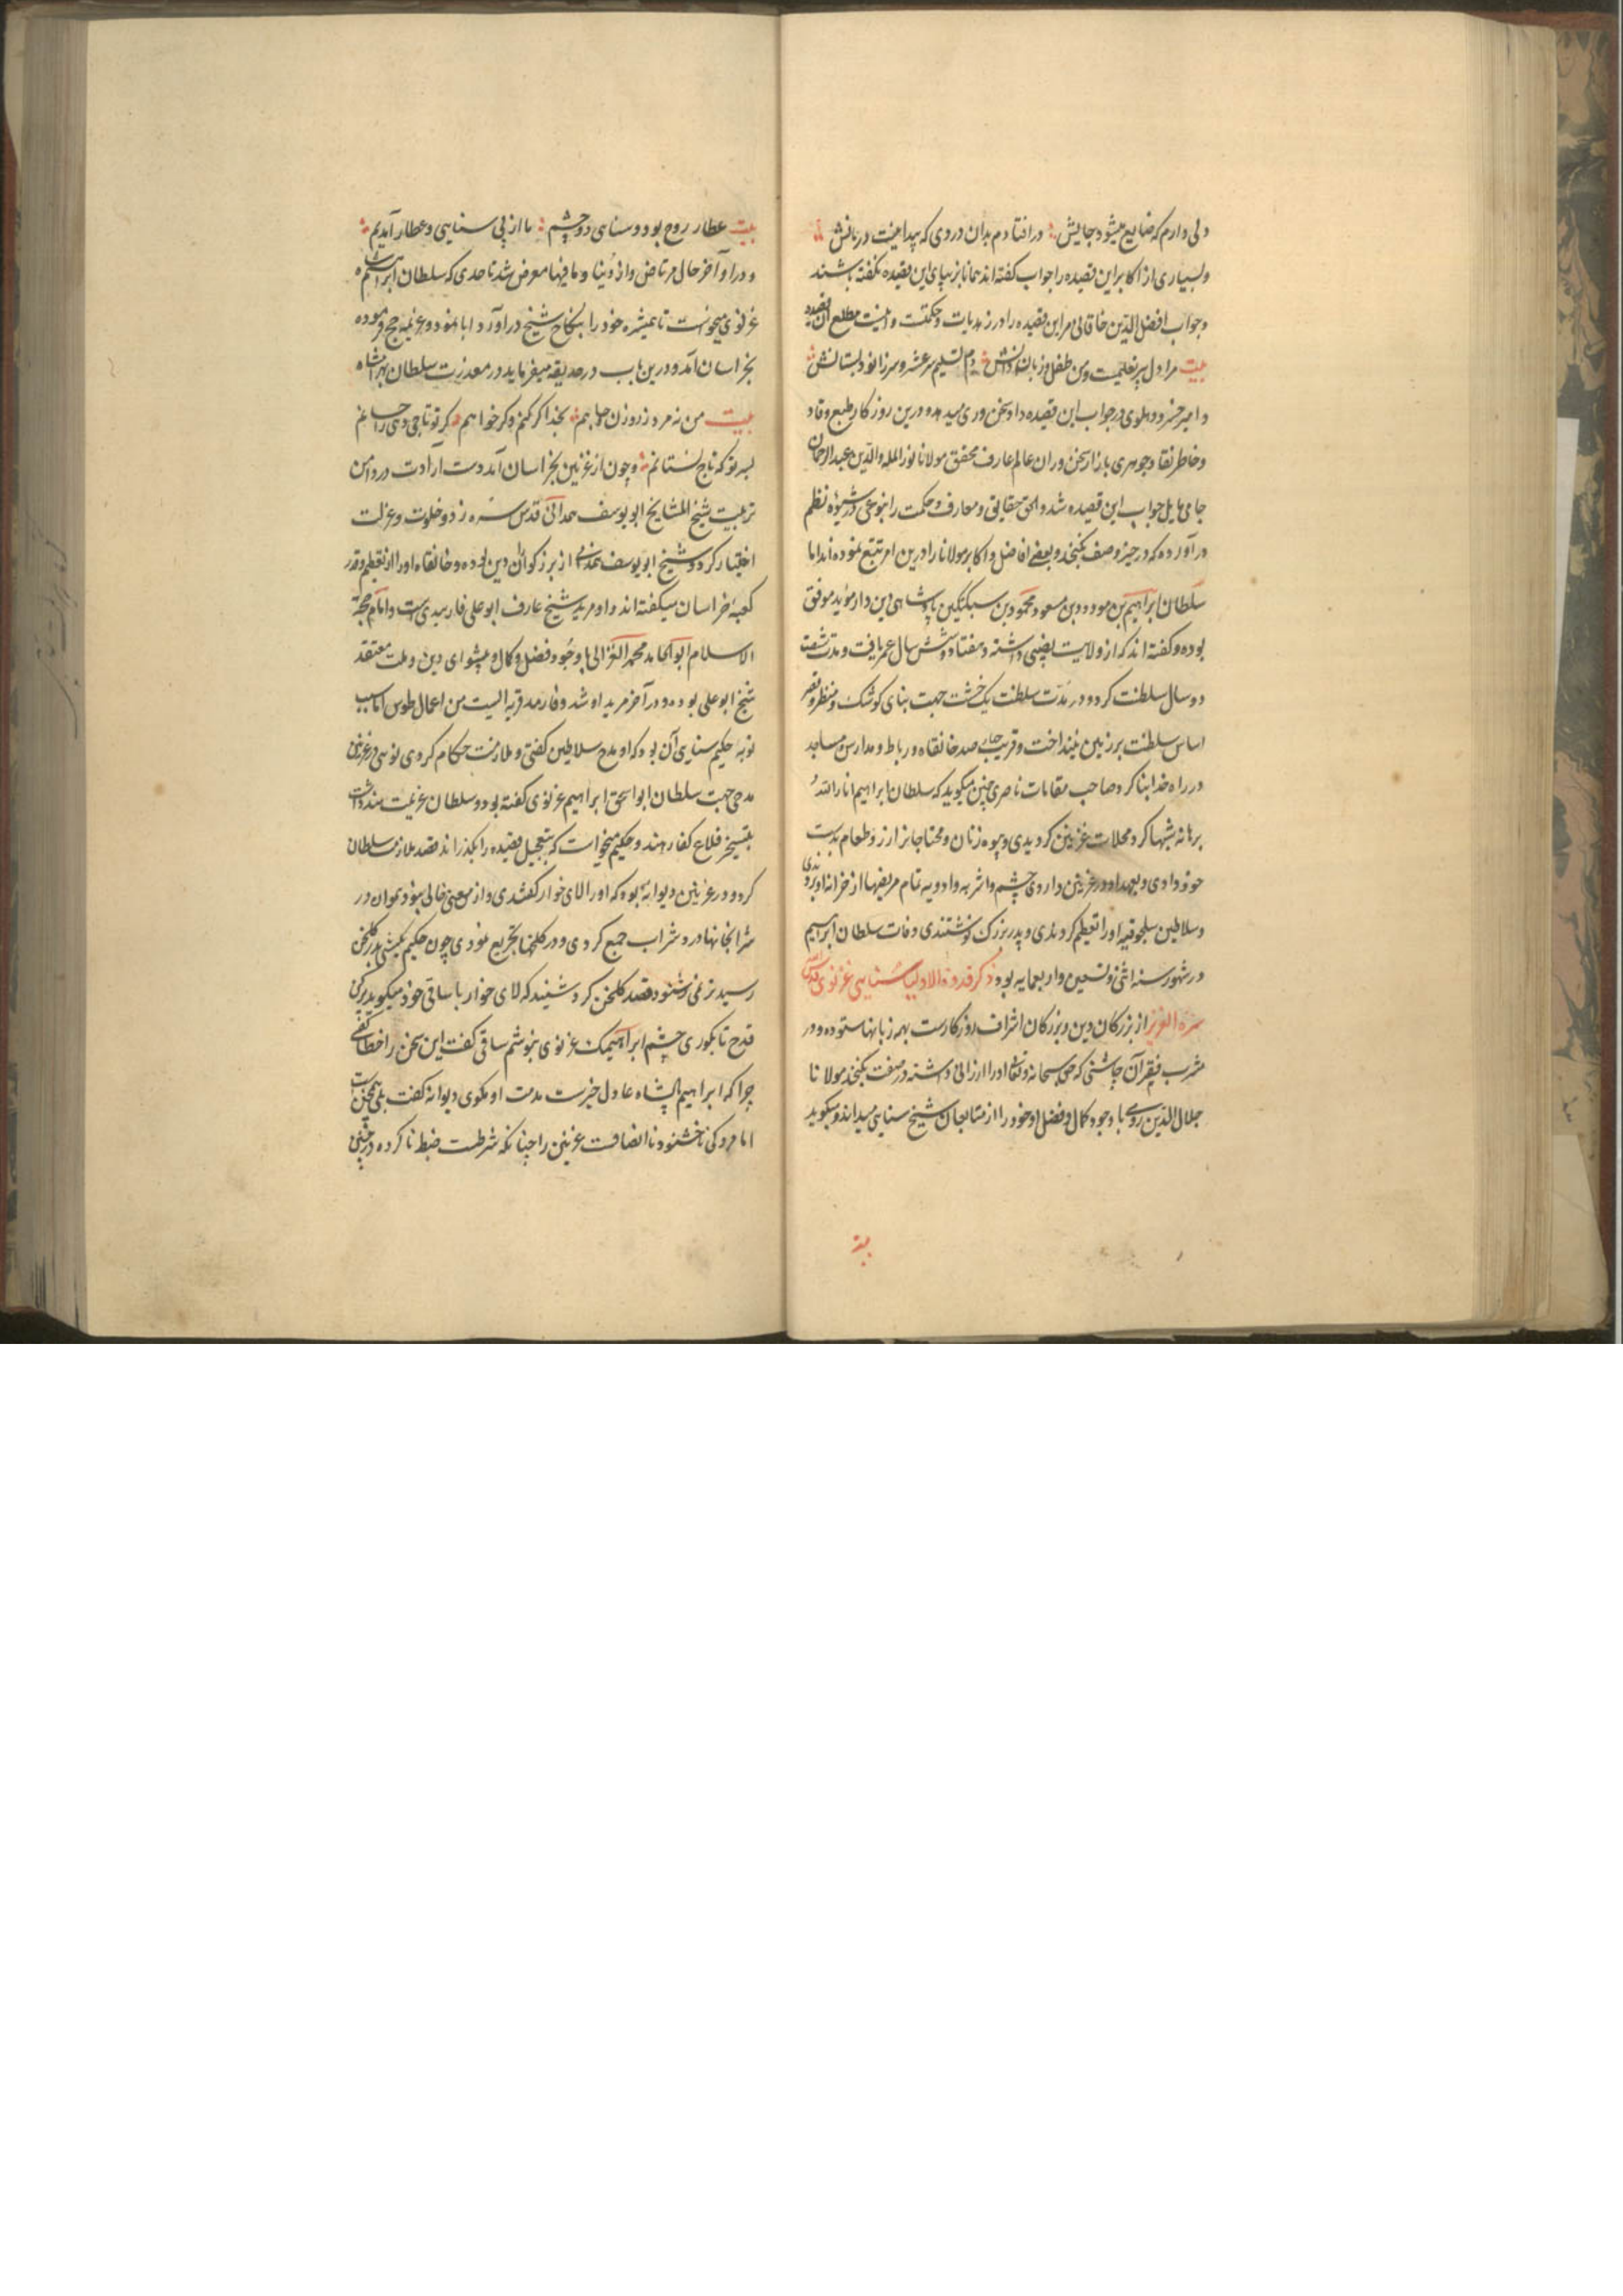 ولی دارم که ضایع میشود جایش در افتادم بدان دردی که پیدا نیست درمانش
وبسیاری از اکابر این قصیده را جواب گفته اند همانا بزیبای این قصیده نگفته باشند
وجواب افضل الدین خاقانی مر این قصیده را در زهدیات وحکمت و اینست مطلع آن قصیده
بیت مرا دل پیر تعلیمست ومن طفل زبان دانش دم تسلیم سر عشر وسر زانو دبستانش
وامیر خسرو دهلوی در جواب این قصیده داد سخن وری میدهد ودرین روزکار طبع وقاد
وخاطر نقاد جوهری بازار سخن وران عالم عارف محقق مولانا نور المله والدین عبدالرحمان
جامی مایل جواب این قصیده شد والحق حقایق ومعارف وحکمت را بنوعی در شیوه نظم
در آورده که در حیز وصف نکنجد وبعضی افاضل واکابر مولانا را درین امر تتبع نموده اند اما
سلطان ابراهیم بن مودود بن مسعود محمود بن سبکتکین پادشاهی دین دار مؤید موفق
بوده وگفته اند که از ولایت نصیبی داشته وهفتاد وشش سال عمر یافت ومدت شصت
دو سال سلطنت کرد ودر مدت سلطنت یک خشت جهت بنای کوشک ومنظر وقصر
اساس سلطنت بر زمین نینداخت وقریب چهار صد خانقاه ورباط ومدارس ومساجد
در راه خدا بنا کرد صاحب مقامات ناصری چنین میکوید که سلطان ابراهیم انار الله
برهانه شبها کرد محلات غزنین کردیدی وبیوه زنان ومحتاجانرا زر وطعام بدست
خود دادی وبعهد او در غزنین داروی چشم واشربه وادویه تمام مریضها از خزانه او بردندی
وسلاطین سلجوقیه او را تعظیم کردندی وپدر بزرک نوشتندی وفات سلطان ابراهیم
در شهور سنه اثنی وتسعین واربعمایه بود ذکر قدوة الاولیا سنایی غزنوی قدس
سره العزیز از بزرکان دین وبزرکان اشراف روزکارست بهمه زبانها ستوده ودر
مشرب فقر آن چاشنی که حق سبحانه وتعالی او را ارزانی داشته در صفت نکنجد مولانا
جلال الدین رومی با وجود کمال وفضل او خود را از متابعان شیخ سنایی میداند ومیکوید
بیت عطار روح بود وسنای دو چشم ما از پی سنایی وعطار آمدیم
ودر اواخر حال مرتاض واز دنیا وما فیها معرض شد تا حدی که سلطان
غزنوی میخواست تا همشیره خود را بنکاح شیخ در آورد ابا نمود وعزیمه حج فرموده
بخراسان آمد ودرین باب در حدیقه میفرماید در معذرت سلطان بهرامشاه
بیت من نه مرد زر وزن وجاهم بخدا کر کنم وکر خواهم کر تو تاجی دهی ز احسانم
بسر تو که تاج نستانم وچون از غزنین بخراسان آمد دست ارادت در دامن
تربیت شیخ المشایخ ابو یوسف همدانی قدس سره زد وخلوت وعزلت
اختیار کرد وشیخ ابو یوسف همدانی از بزرکواران دین بوده وخانقاه او را از تعظیم وقدر
کعبه خراسان میکفته اند واو مرید شیخ عارف ابو علی فارمیدی است وامام حجة
الاسلام ابو الحامد محمد الغزالی با وجود فضل وکمال وپیشوای دین وملت معتقد
شیخ ابو علی بوده ودر آخر مرید او شد وفارمد قریه ایست من اعمال طوس اما سبب
توبه حکیم سنایی آن بود که او مدح سلاطین کفتی وملازمت حکام کردی نوبتی در غزنین
مدحی جهت سلطان ابو اسحق ابراهیم غزنوی کفته بود وسلطان عزیمت هند داشت
بتسخیر قلاع کفار هند وحکیم میخواست که بتعجیل قصیده را بکذراند قصد ملازمت سلطان
کرد ودر غزنین دیوانه بوده که او را لای خوار کفتندی واز معنی خالی نبود همواره در
شرابخانها درد شراب جمع کردی ودر کلخنها تجریع نمودی چون حکیم سنایی بدر کلخن
رسید ترنمی شنود قصد کلخن کرد شنید که لای خوار با ساقی خود میکوید پر کن
قدح تا بکوری چشم ابراهیمک غزنوی بنوشم ساقی کفت این سخن را خطا کفتی
چرا که ابراهیم پادشاه عادل خیرست مذمت او مکوی دیوانه کفت بلی همچنین است
اما مردکی ناخشنود نا انصافست غزنین را چنانکه شرطست ضبط نا کرده در چنین